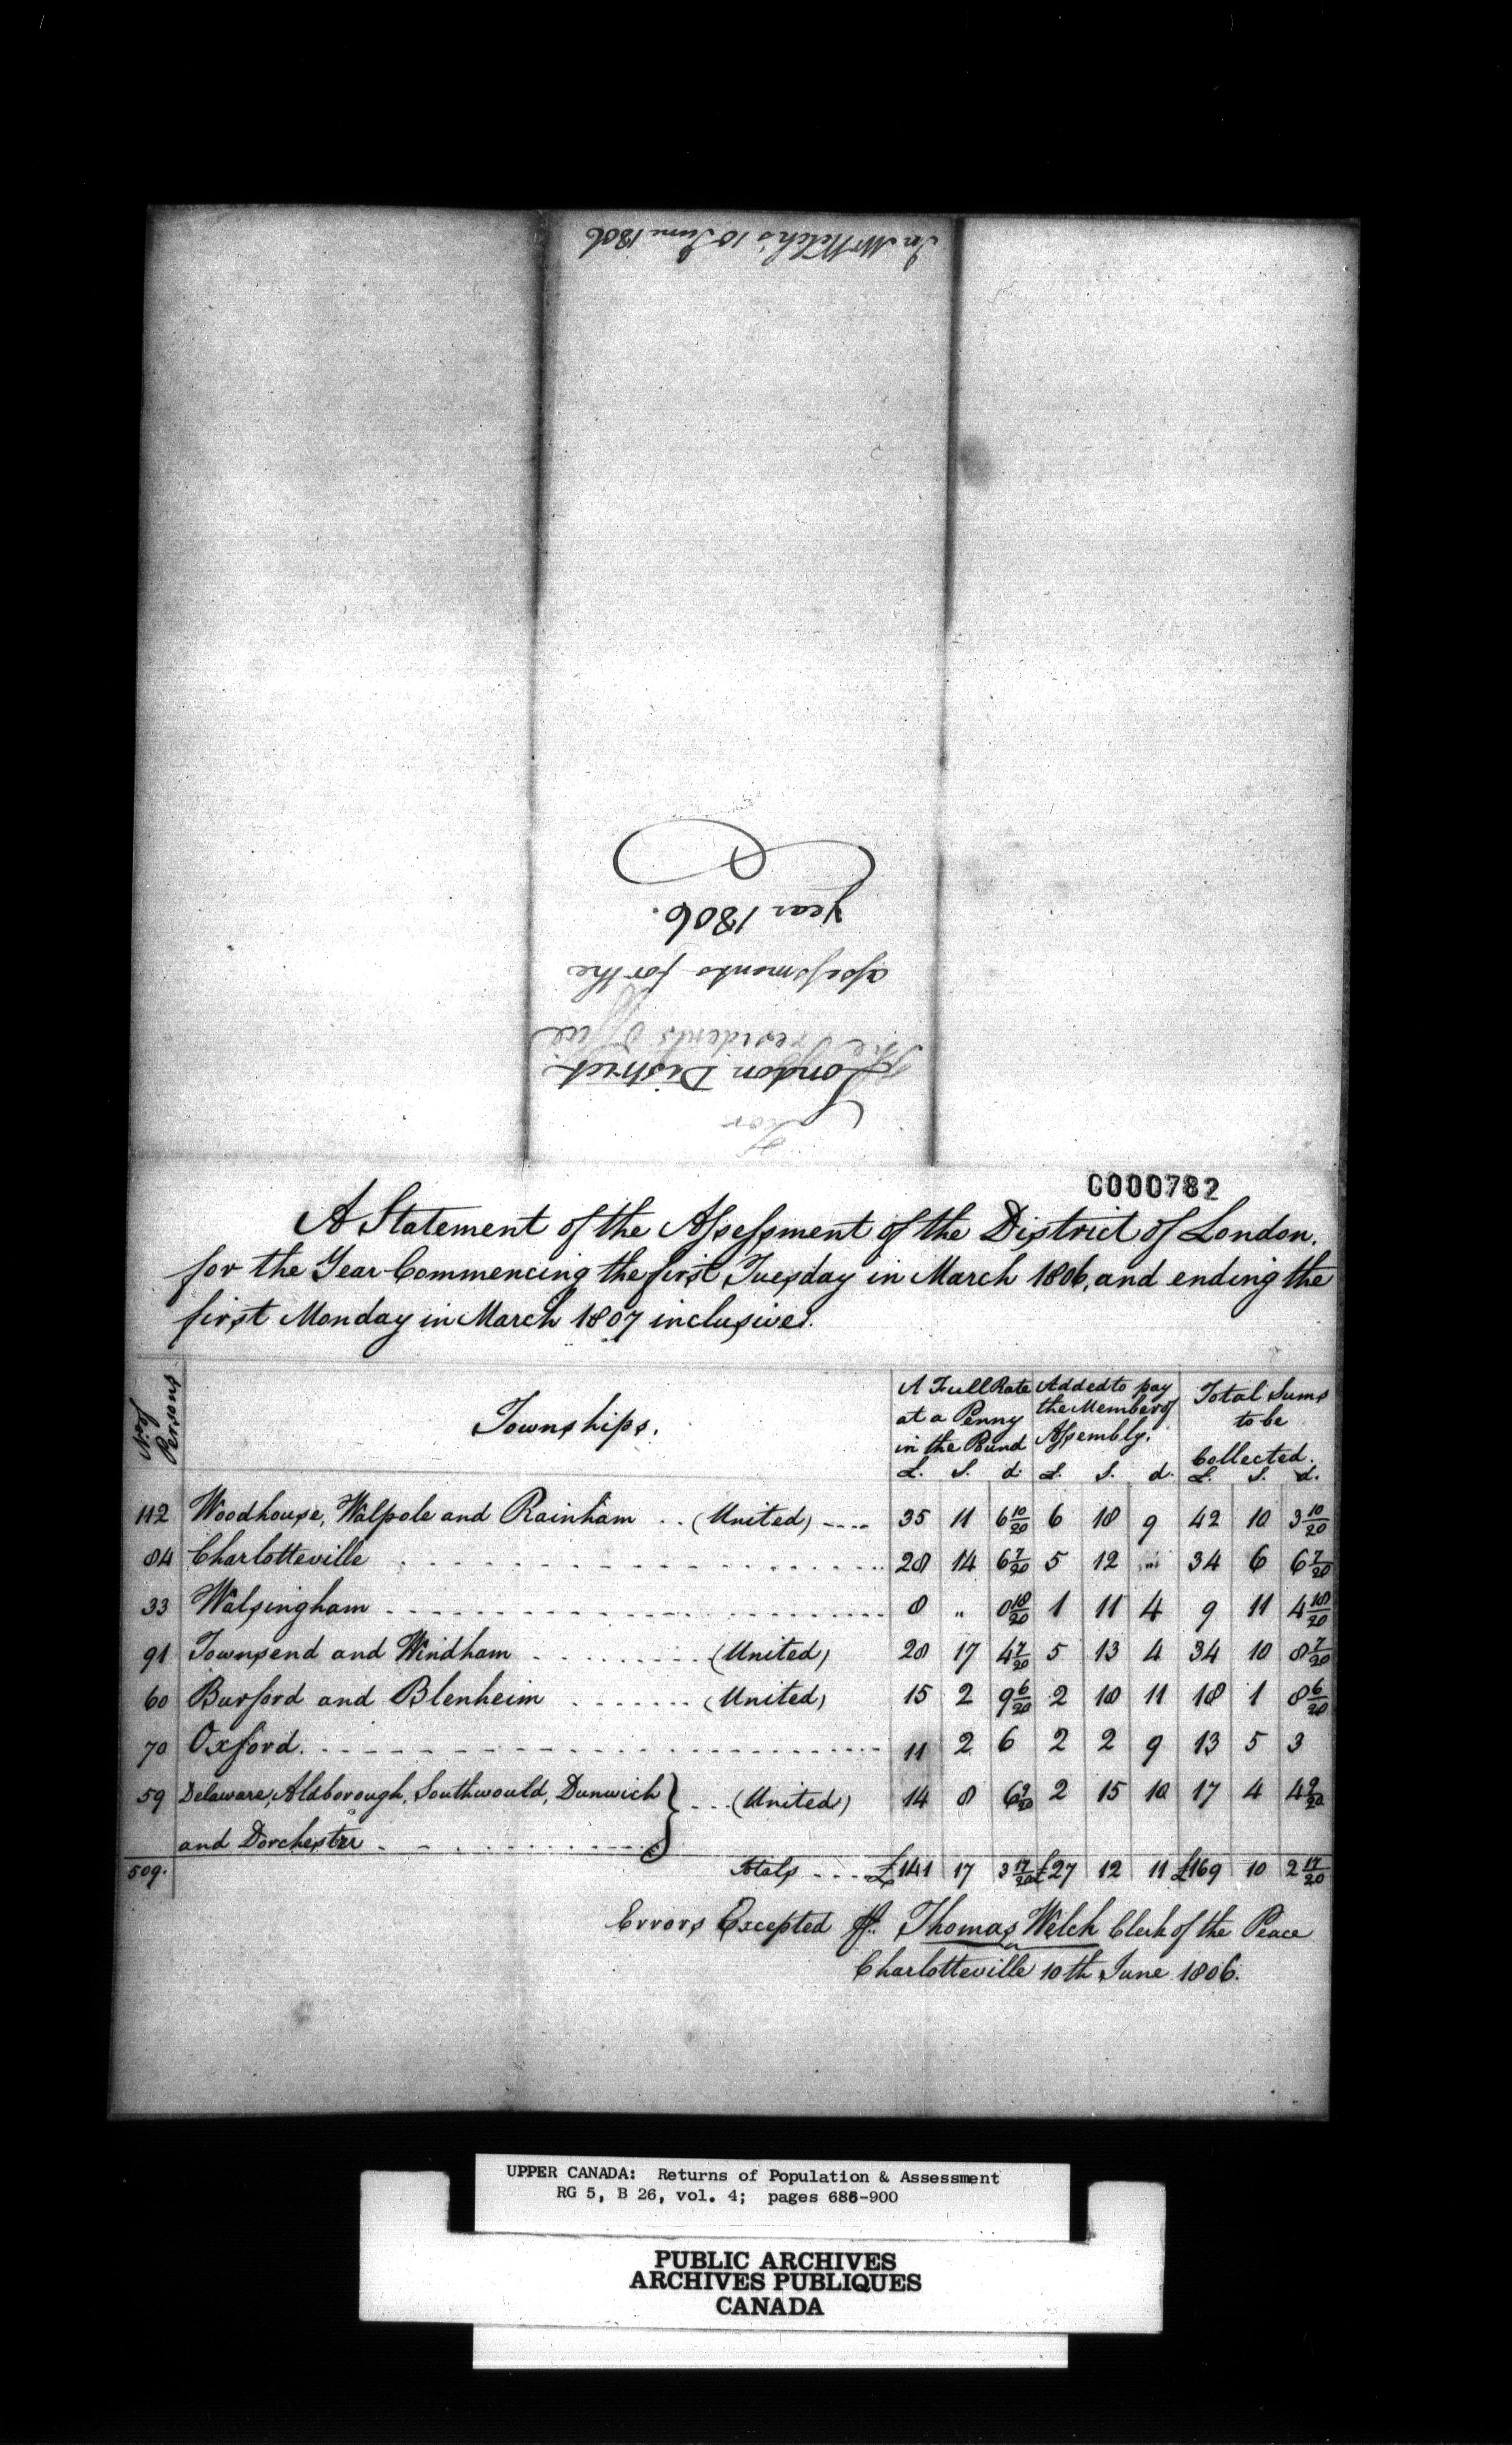 In Mr Welch's 10 June 1806
year 1806.
assessments for the
The Presidents Office
London District.
For
C000782
A Statement of the Assessment of the District of London.
for the Year Commencing the first Tuesday in March 1806, and ending the
first Monday in March 1807 inclusive.
No. of Persons Townships. A Full Rate at a Penny in the Pound Added to pay the Member of Assembly. Total Sums to be Collected.
£. S. d. £. S. d. £. S. d.
112 Woodhouse, Walpole and Rainham .. (United) .... 35 11 6 10/20 6 18 9 42 10 3 10/20
84 Charlotteville 28 14 6 7/20 5 12 " 34 6 6 7/20
33 Walsingham 8 " 0 18/20 1 11 4 9 11 4 18/20
91 Townsend and Windham (United) 28 17 4 7/20 5 13 4 34 10 8 7/20
60 Burford and Blenheim (United) 15 2 9 6/20 2 18 11 18 1 8 6/20
70 Oxford. 11 2 6 2 2 9 13 5 3
59 Delaware, Aldborough, Southwould, Dunwich } ... (United) 14 8 6 9/20 2 15 10 17 4 4 9/20
and Dorchester
509. Totals .... £141 17 3 17/20 £27 12 11 £169 10 2 17/20
Errors Excepted Thomas Welch Clerk of the Peace
Charlotteville 10th June 1806.
UPPER CANADA: Returns of Population & Assessment
RG 5, B 26, vol. 4; pages 686-900
PUBLIC ARCHIVES
ARCHIVES PUBLIQUES
CANADA